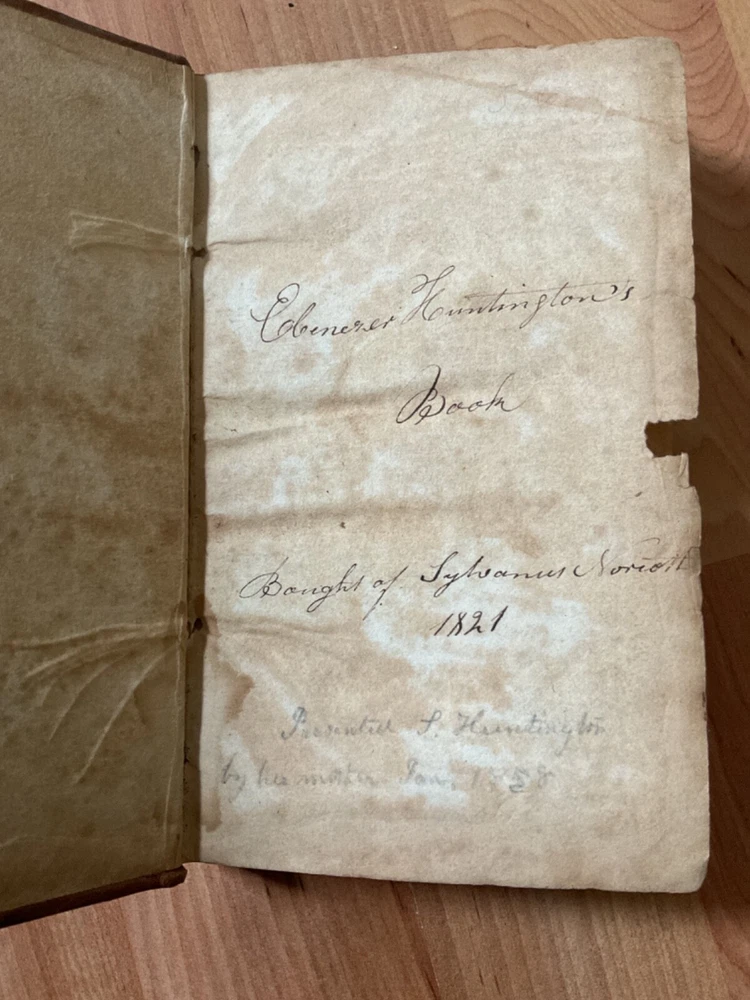 Ebenezer Huntington's
Book
Bought of Sylvanus
1821
Presented S. Huntington
by her mother Jan, 1858